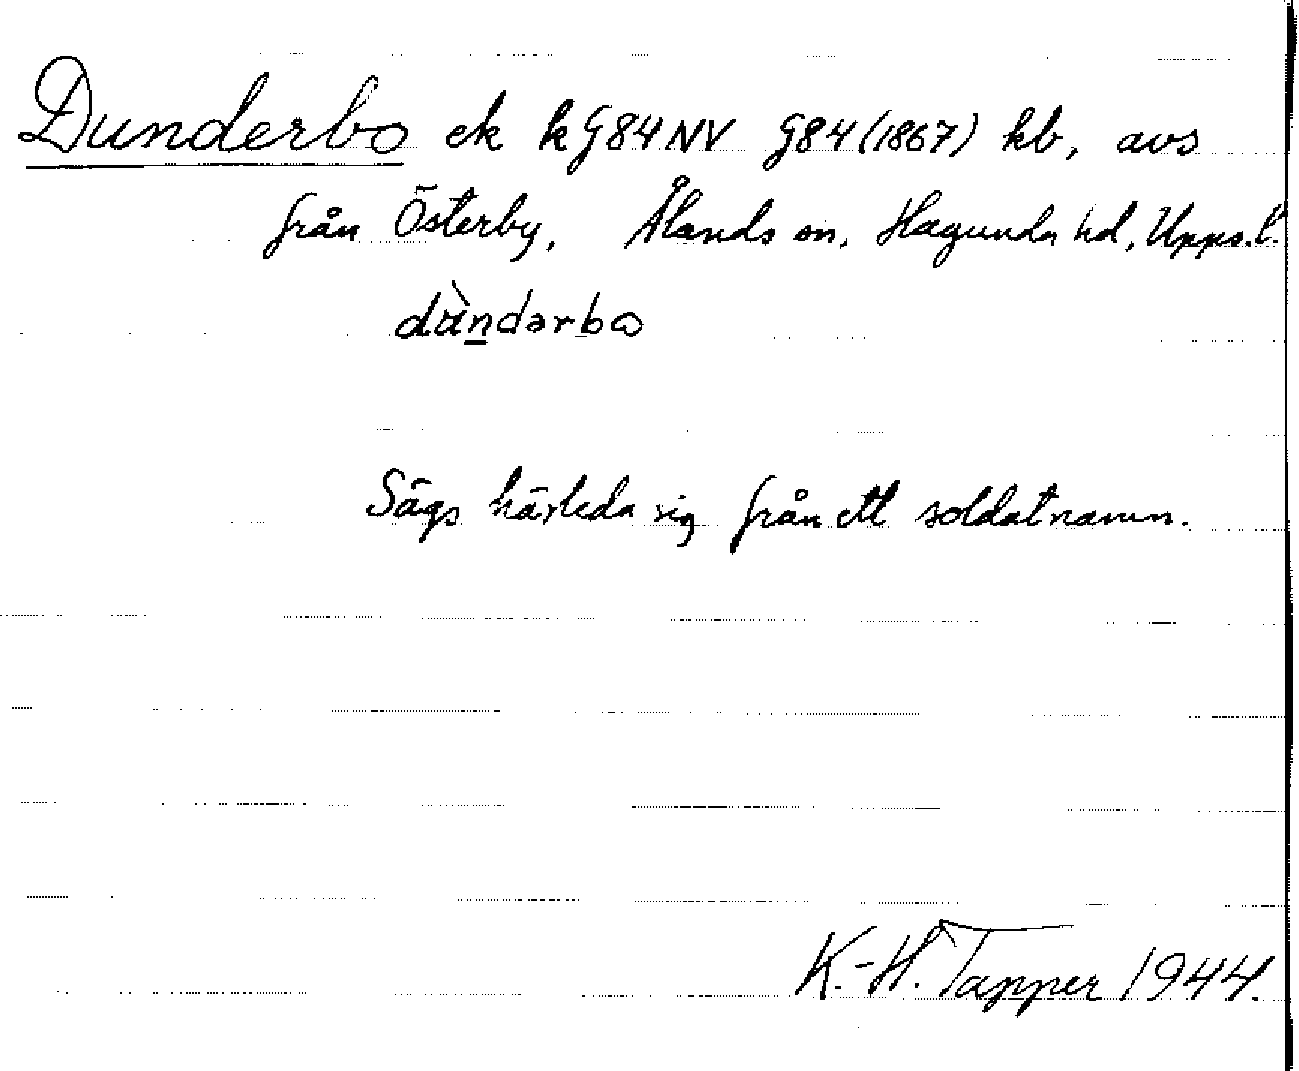 Dunderbo ek k G84NV G84 (1867) kb, avs
från Österby, Ålands sn, Hagunda hd, Upps.l.
dàndərbo
Sägs härleda sig från ett soldatnamn.
K.-H. Tapper 1944.